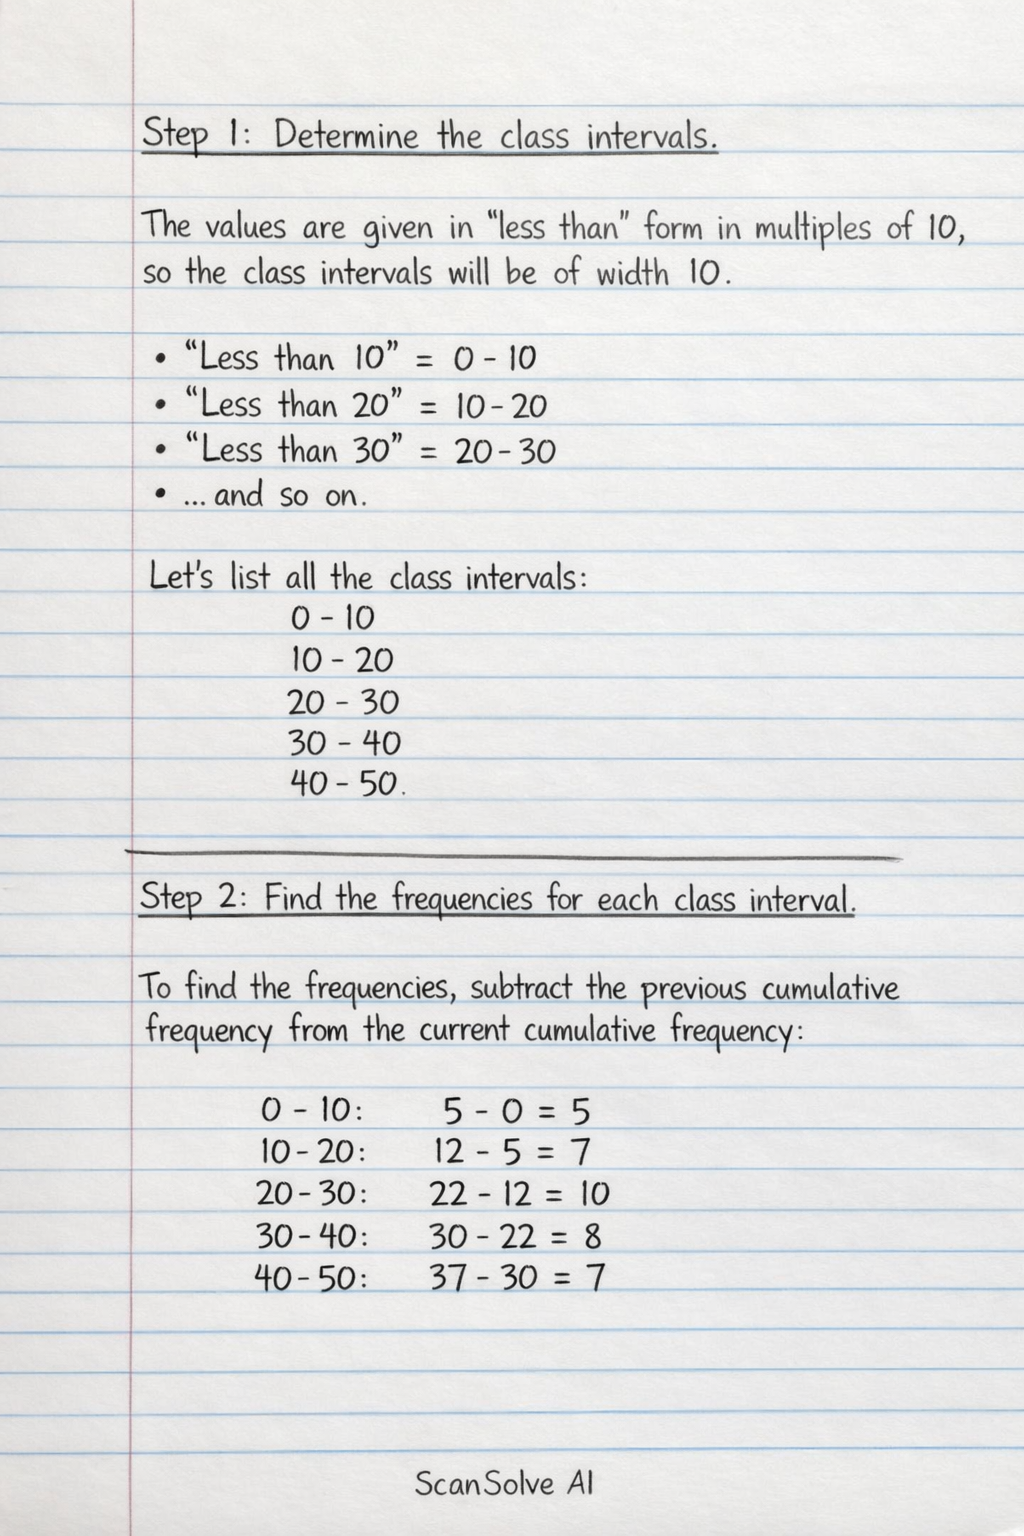 Step 1: Determine the class intervals.
The values are given in “less than” form in multiples of 10,
so the class intervals will be of width 10.
• “Less than 10” = 0 - 10
• “Less than 20” = 10 - 20
• “Less than 30” = 20 - 30
• ... and so on.
Let's list all the class intervals:
0 - 10
10 - 20
20 - 30
30 - 40
40 - 50.
Step 2: Find the frequencies for each class interval.
To find the frequencies, subtract the previous cumulative
frequency from the current cumulative frequency:
0 - 10: 5 - 0 = 5
10 - 20: 12 - 5 = 7
20 - 30: 22 - 12 = 10
30 - 40: 30 - 22 = 8
40 - 50: 37 - 30 = 7
ScanSolve AI